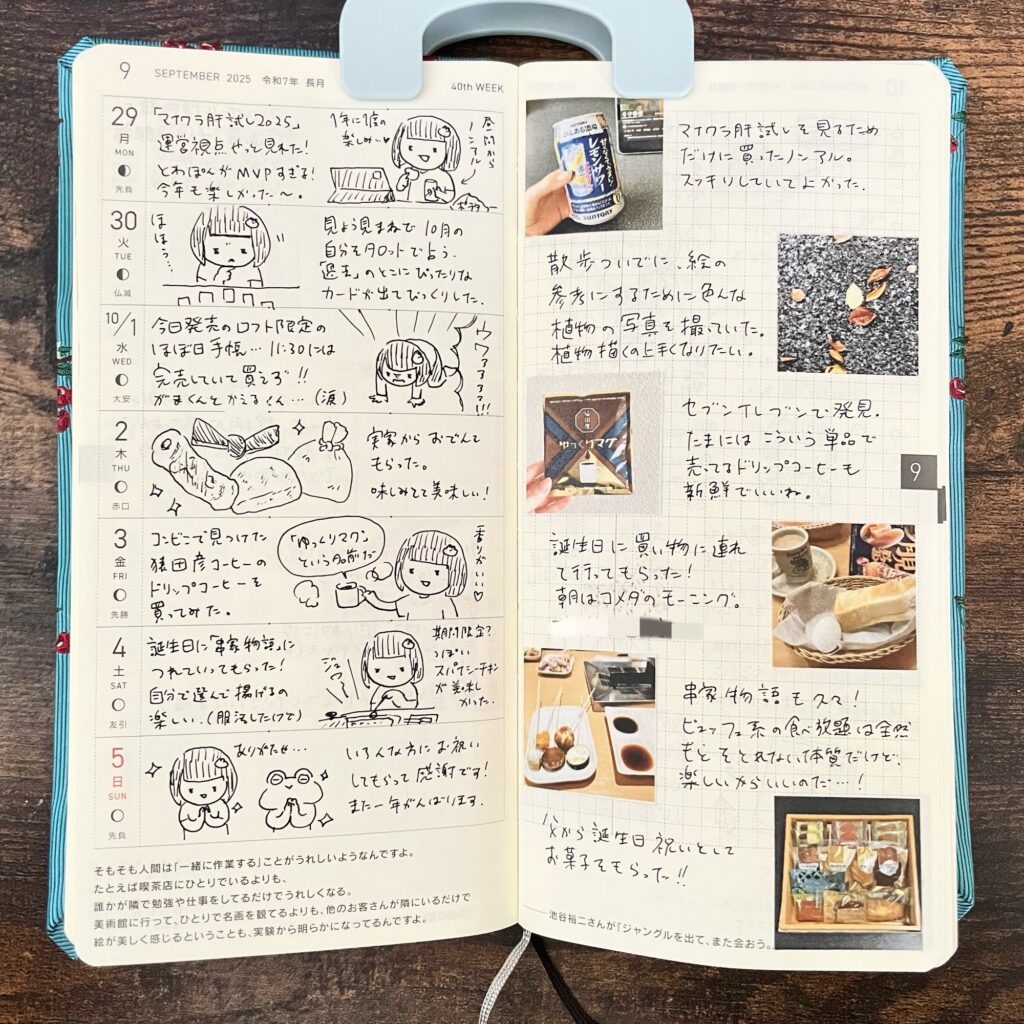 9 SEPTEMBER 2025 令和7年 長月
40th WEEK
29
月
MON
先負
「マイクラ肝試し2025」
運営視点やっと見れた!
とりぽんがMVPすぎる!
今年も楽しかった〜。
1年に1度の
楽しみ〜♥
昼間から
ノンアル
30
火
TUE
仏滅
ほほう…
見よう見まねで10月の
自分をタロットでよう。
「過去」のとこにぴったりな
カードが出てびっくりした。
10/1
水
WED
大安
今日発売のロフト限定の
ほぼ日手帳…11:30には
完売していて買えず!!
がまくんとかえるくん…(涙)
ウワァァァァ!!!
2
木
THU
赤口
実家からおでんを
もらった。
味しみてて美味しい!
3
金
FRI
先勝
コンビニで見つけた
猿田彦コーヒーの
ドリップコーヒーを
買ってみた。
「ゆっくりマグ」
という名前だ
香りがいい♡
4
土
SAT
友引
誕生日に「串家物語」に
つれていってもらった!
自分で選んで揚げるの
楽しい。(服汚したけど)
ジュワ〜
期間限定?
っぽい
スパイシーチキン
が美味し
かった。
5
日
SUN
先負
ありがたや…
いろんな方にお祝い
してもらって感謝です!
また一年がんばります。
そもそも人間は「一緒に作業する」ことがうれしいようなんですよ。
たとえば喫茶店にひとりでいるよりも、
誰かが隣で勉強や仕事をしてるだけでうれしくなる。
美術館に行って、ひとりで名画を観てるよりも、他のお客さんが隣にいるだけで
絵が美しく感じるということも、実験から明らかになってるんですよ。
マイクラ肝試しを見るため
だけに買ったノンアル。
スッキリしていてよかった。
レモンサワー
SUNTORY
散歩ついでに、絵の
参考にするために色んな
植物の写真を撮っていた。
植物描くの上手くなりたい。
ゆっくりマグ
セブンイレブンで発見。
たまにはこういう単品で
売ってるドリップコーヒーも
新鮮でいいね。
9
誕生日に買い物に連れ
て行ってもらった!
朝はコメダのモーニング。
串家物語も久々!
ビュッフェ系の食べ放題は全然
もとをとれない体質だけど、
楽しいからいいのだ…!
父から誕生日祝いとして
お菓子をもらった!!
池谷裕二さんが『ジャングルを出て、また会おう。